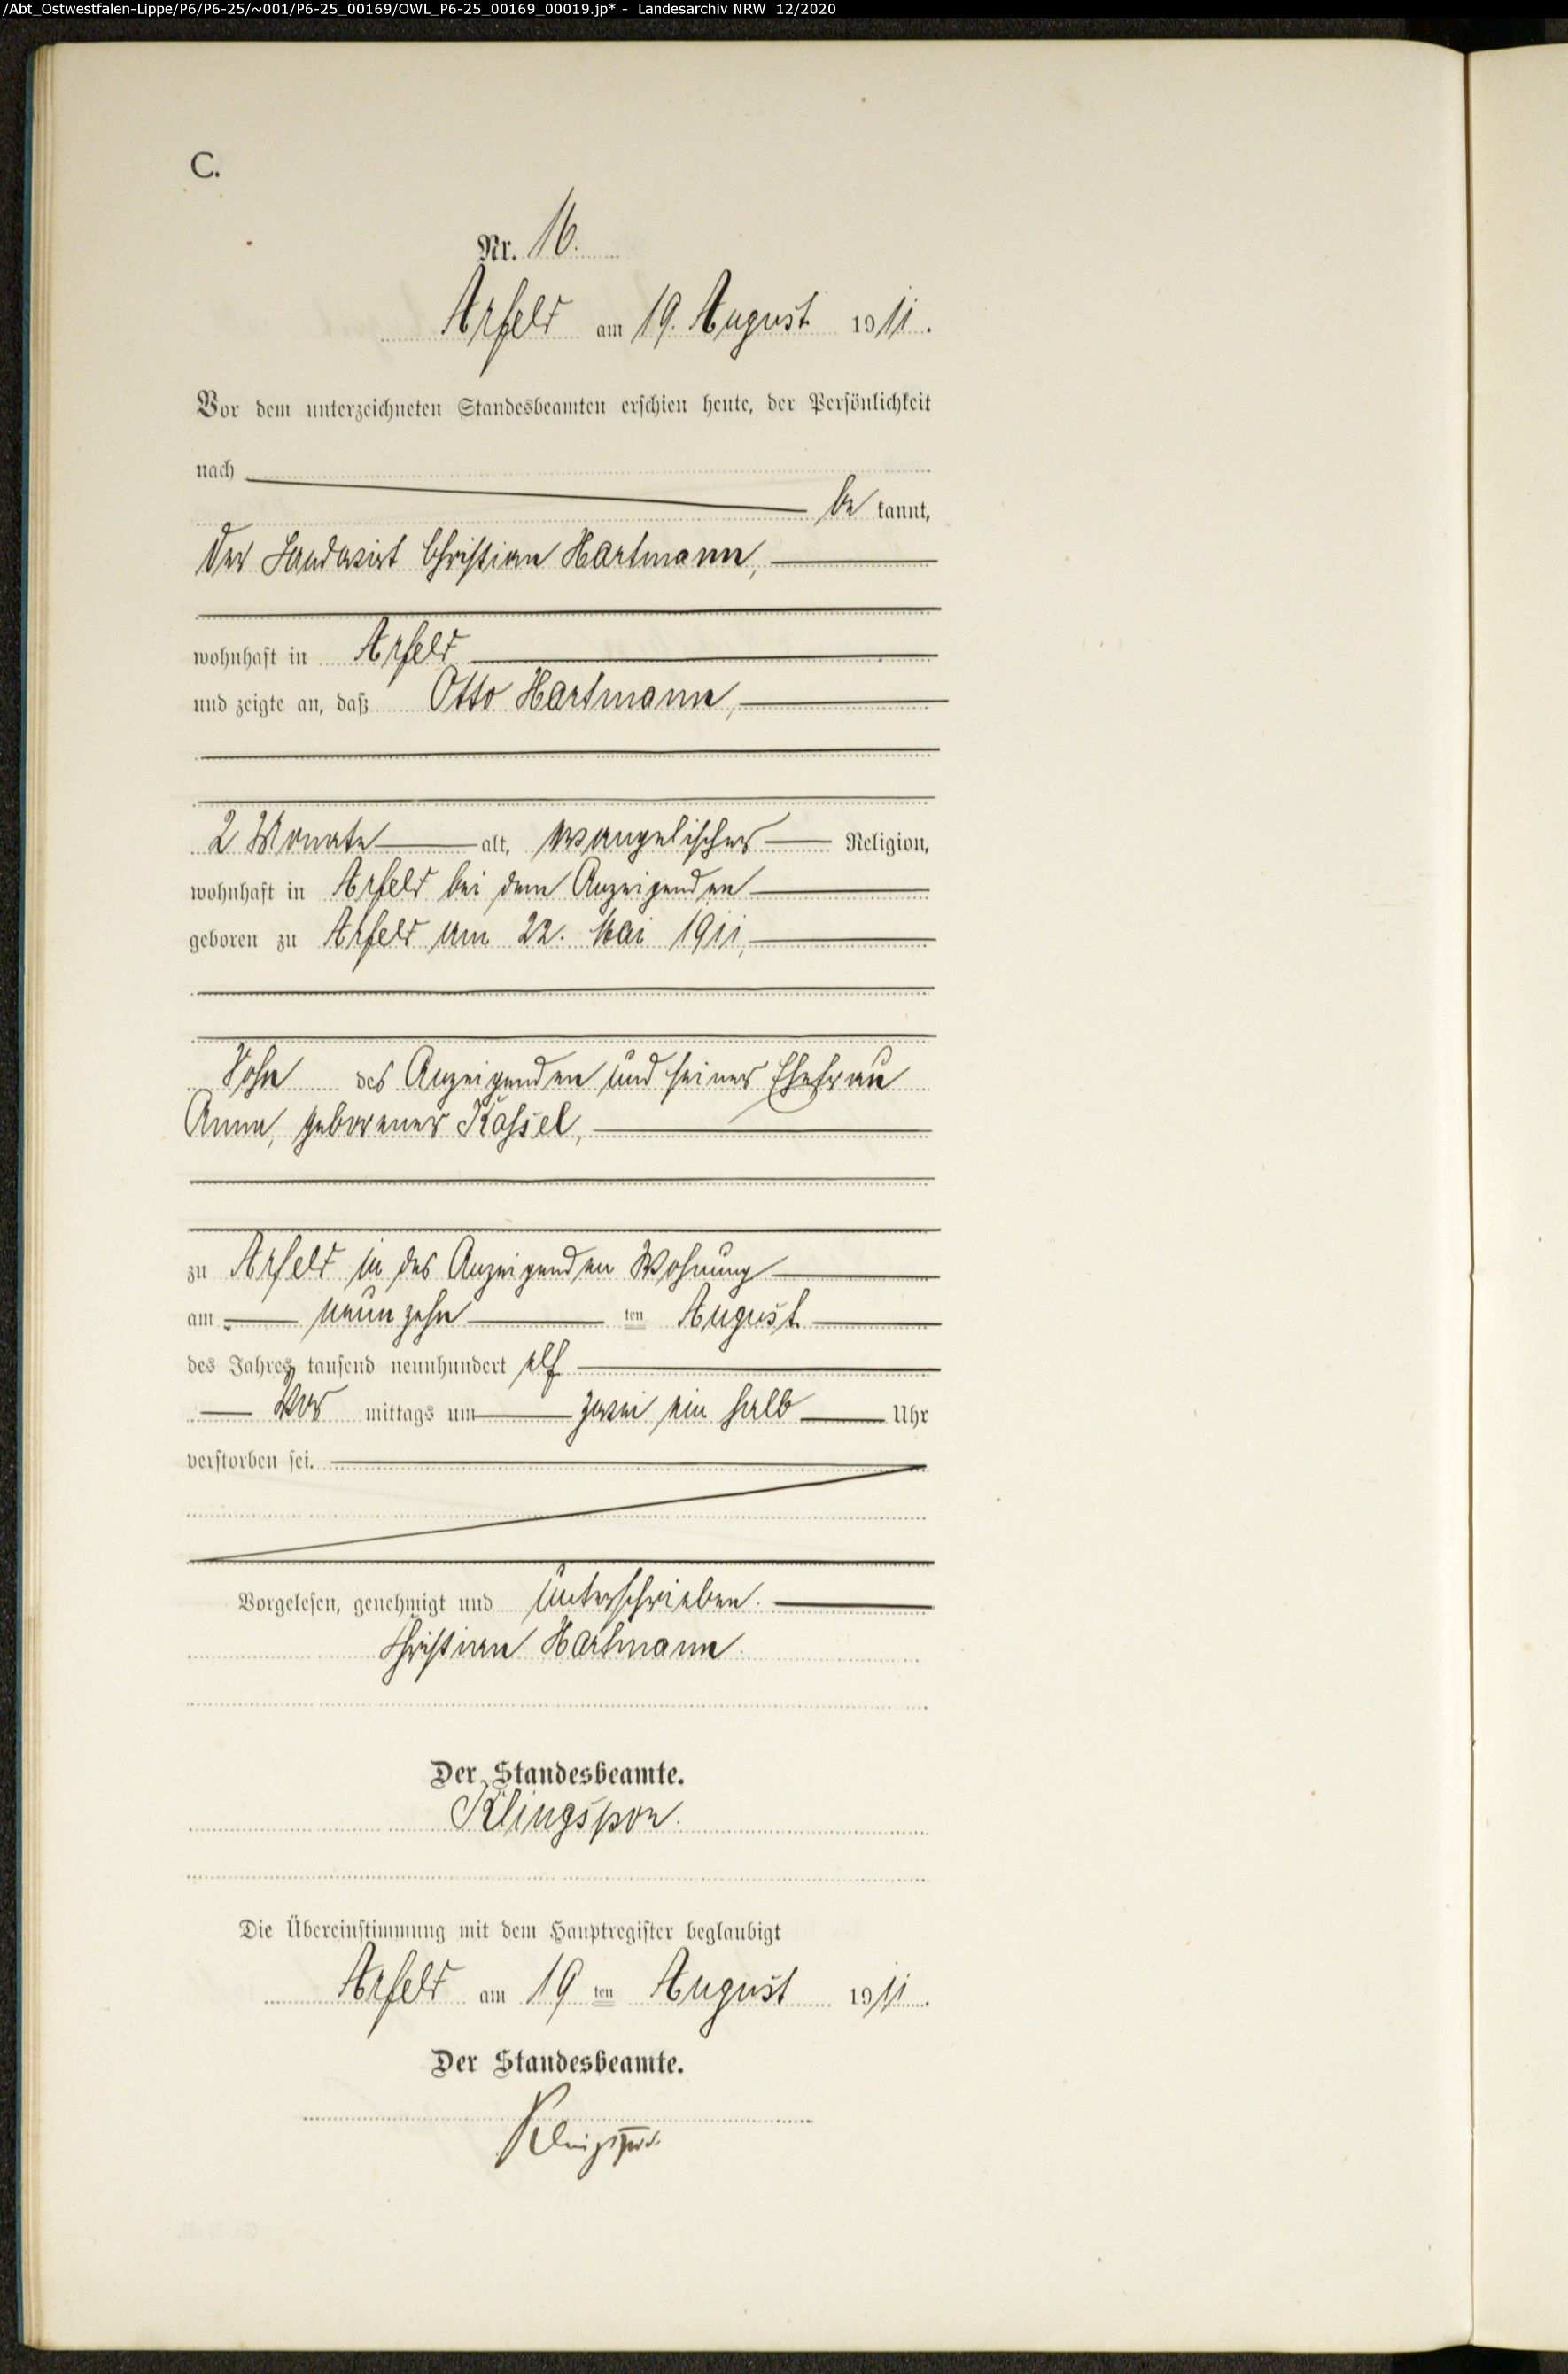 /Abt_Ostwestfalen-Lippe/P6/P6-25/~001/P6-25_00169/OWL_P6-25_00169_00019.jp* - Landesarchiv NRW 12/2020
C.
Nr. 16.
Arfeld am 19. August 1911.
Vor dem unterzeichneten Standesbeamten erschien heute, der Persönlichkeit
nach
be kannt,
der Landwirt Christian Hartmann,
wohnhaft in Arfeld
und zeigte an, daß Otto Hartmann,
2 Monate alt, evangelischer Religion,
wohnhaft in Arfeld bei dem Anzeigenden
geboren zu Arfeld am 22. Mai 1911,
Sohn des Anzeigenden und seiner Ehefrau
Anna, geborener Kassel,
zu Arfeld in des Anzeigenden Wohnung
am neunzehn ten August
des Jahres tausend neunhundert elf
Vor mittags um zwei ein halb Uhr
verstorben sei.
Vorgelesen, genehmigt und unterschrieben.
Christian Hartmann.
Der Standesbeamte.
Klingspor.
Die Übereinstimmung mit dem Hauptregister beglaubigt
Arfeld am 19 ten August 1911.
Der Standesbeamte.
Klingspor.